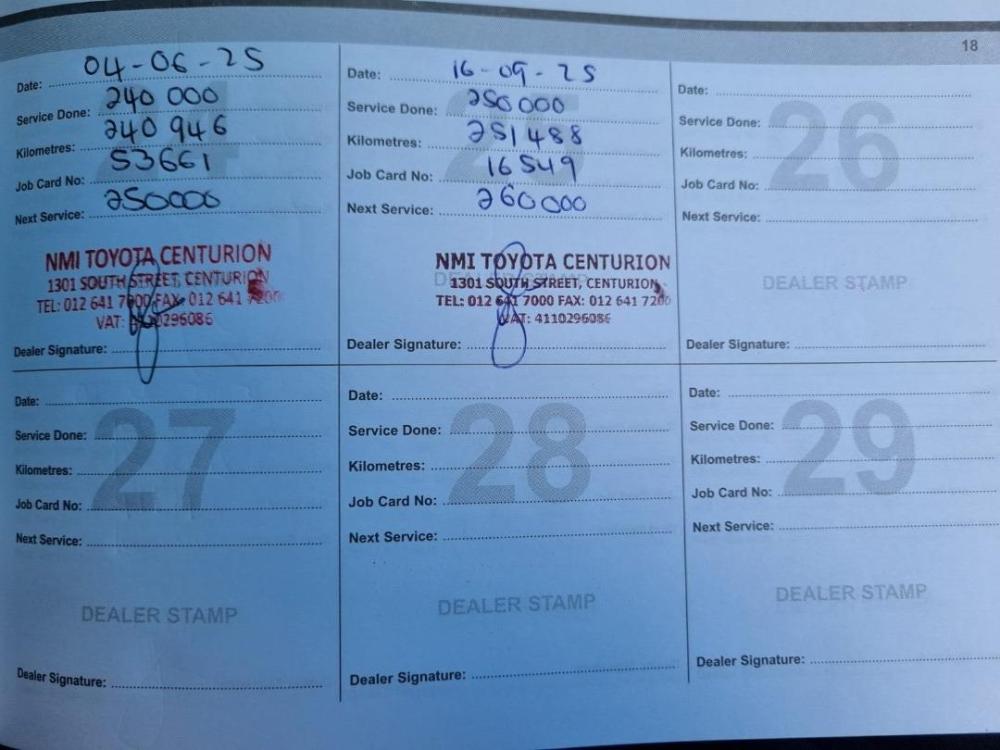 18
Date: 04-06-25
Service Done: 240 000
Kilometres: 240 946
Job Card No: 53661
Next Service: 250000
NMI TOYOTA CENTURION
1301 SOUTH STREET, CENTURION
TEL: 012 641 7000 FAX: 012 641 7200
VAT: 4110296086
Dealer Signature:
Date: 16-09-25
25
Service Done: 250000
Kilometres: 251488
Job Card No: 16549
Next Service: 260000
DEALER STAMP
NMI TOYOTA CENTURION
1301 SOUTH STREET, CENTURION
TEL: 012 641 7000 FAX: 012 641 7200
VAT: 4110296086
Dealer Signature:
Date:
26
Service Done:
Kilometres:
Job Card No:
Next Service:
DEALER STAMP
Dealer Signature:
Date:
27
Service Done:
Kilometres:
Job Card No:
Next Service:
DEALER STAMP
Dealer Signature:
Date:
28
Service Done:
Kilometres:
Job Card No:
Next Service:
DEALER STAMP
Dealer Signature:
Date:
29
Service Done:
Kilometres:
Job Card No:
Next Service:
DEALER STAMP
Dealer Signature: